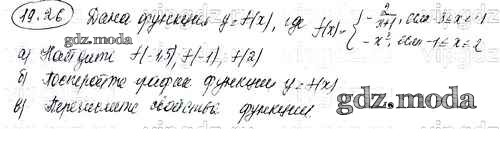 19.26 Дана функция y=f(x), где f(x)= { -2/(x+1), если -3≤x<-1
-x², если -1≤x≤2
а) Найдите f(-1,5), f(-1), f(2)
б) Постройте график функции y=f(x)
в) Перечислите свойства функции.
gdz.moda
gdz.moda